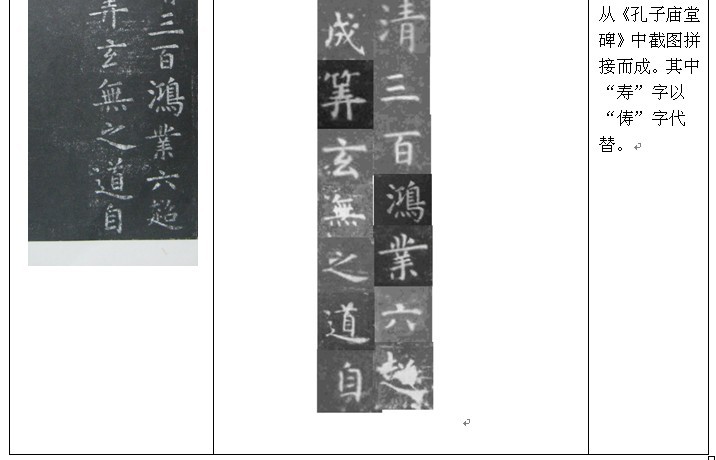 三百鴻業六超
玄無之道自
清三百鴻業六超
成筭玄無之道自
从《孔子庙堂
碑》中截图拼
接而成。其中
“寿”字以
“俦”字代
替。